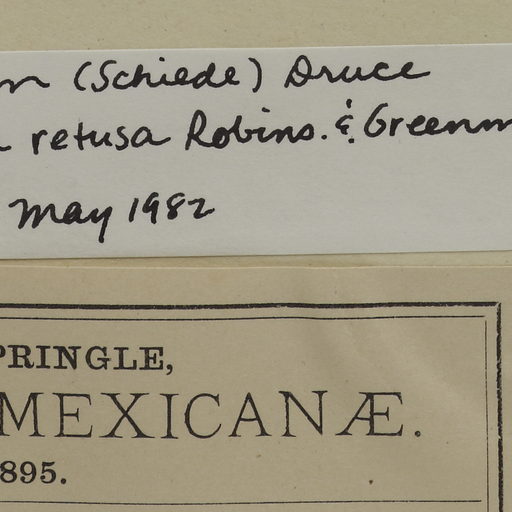 (Schiede) Druce
retusa Robins. & Greenm
May 1982
PRINGLE,
MEXICANÆ.
895.